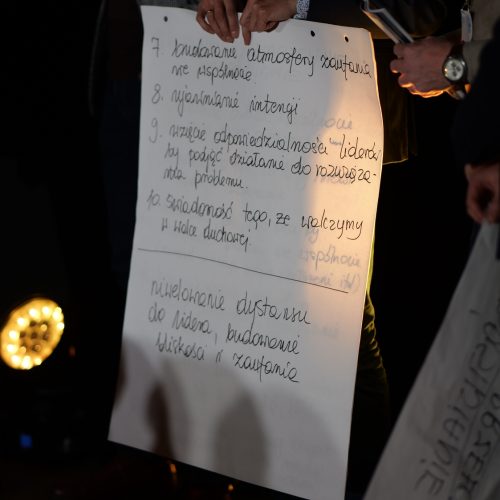 7. budowanie atmosfery zaufania
we wspólnocie
8. ujawnianie intencji
9. wzięcie odpowiedzialności liderów
by podjąć działanie do rozwiąza-
nia problemu.
10. świadomość tego, że walczymy
w walce duchowej.
niwelowanie dystansu
do lidera, budowanie
bliskości i zaufania